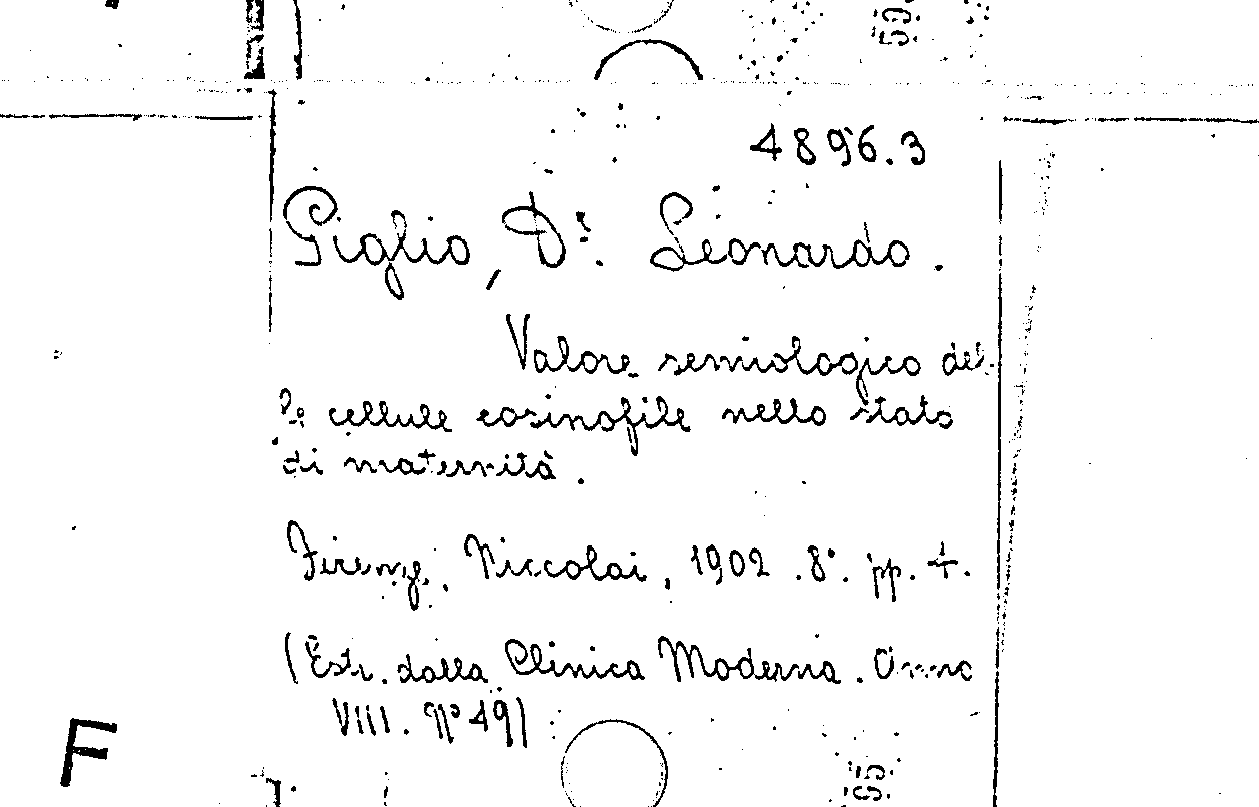 4896.3
Giglio, Dr. Leonardo.
Valore semiologico del
le cellule eosinofile nello stato
di maternità.
Firenze, Niccolai, 1902. 8°. pp. 4.
(Estr. dalla Clinica Moderna. Anno
VIII. N° 49)
F